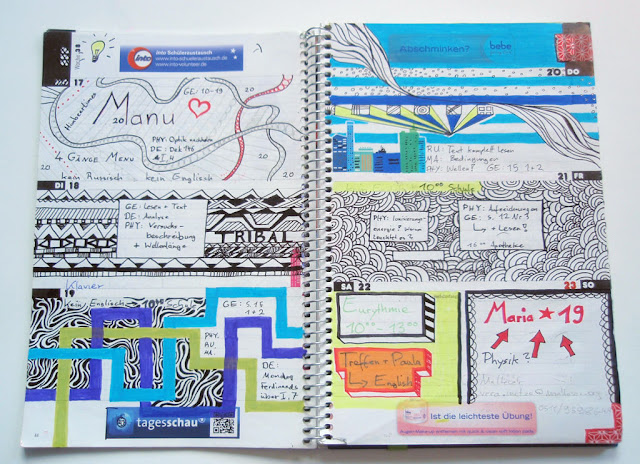 Into Schüleraustausch
www.into-schueleraustausch.de
www.into-volunteer.de
into
17
GE: 10-19
Manu
20
20
20
PHY: Optik
DE: Dok 116
4 GÄNGE MENU
kein Russisch
kein Englisch
DI 18
GE: Lesen + Text
DE: Analyse
PHY: Versuchs-
beschreibung
+ Wellenlänge
TRIBAL
Klavier
19
kein Englisch
GE: S. 15
1+2
PHY:
RU:
MA:
DE:
Monolog
Ferdinands
über I, 7
tagesschau
Abschminken?
bebe
20 DO
RU: Text komplett lesen
MA: Bedingungen
PHY: Wellen?
GE: 15, 1+2
21 FR
18:00 Schule
PHY:
energie? Warum
leuchtet es?
PHY: Aufzeichnungen
GE: S. 12 Nr. 3
↳ + Lesen?
Apotheke
SA 22
Eurythmie
10:00 - 13:00
Treffen + Paula
↳ English
23 SO
Maria ★ 19
Physik?
Ist die leichteste Übung!